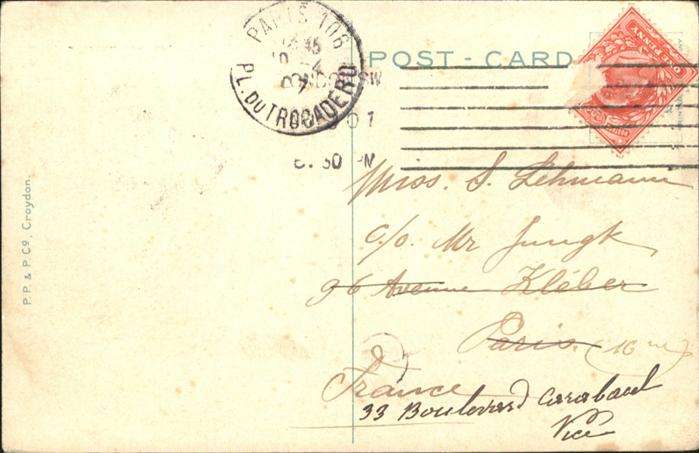 POST - CARD
PARIS 106
PL. DU TROCADERO
SW
PM
ONE PENNY
P.P. & P. Co, Croydon.
Miss. S. Lehmann
c/o. Mr Jungk
96 Avenue Kléber
Paris. (16me)
France
33 Boulevard Carabacel
Nice